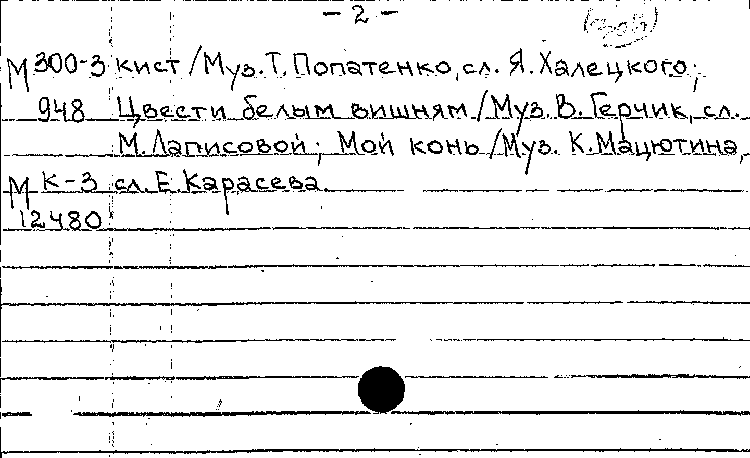 - 2 -
М 300-3 кист / Муз. Т. Попатенко, сл. Я. Халецкого;
948 Цвести белым вишням / Муз. В. Герчик, сл.
М. Лаписовой; Мой конь / Муз. К. Мацютина,
М К-3 сл. Е. Карасева.
12480